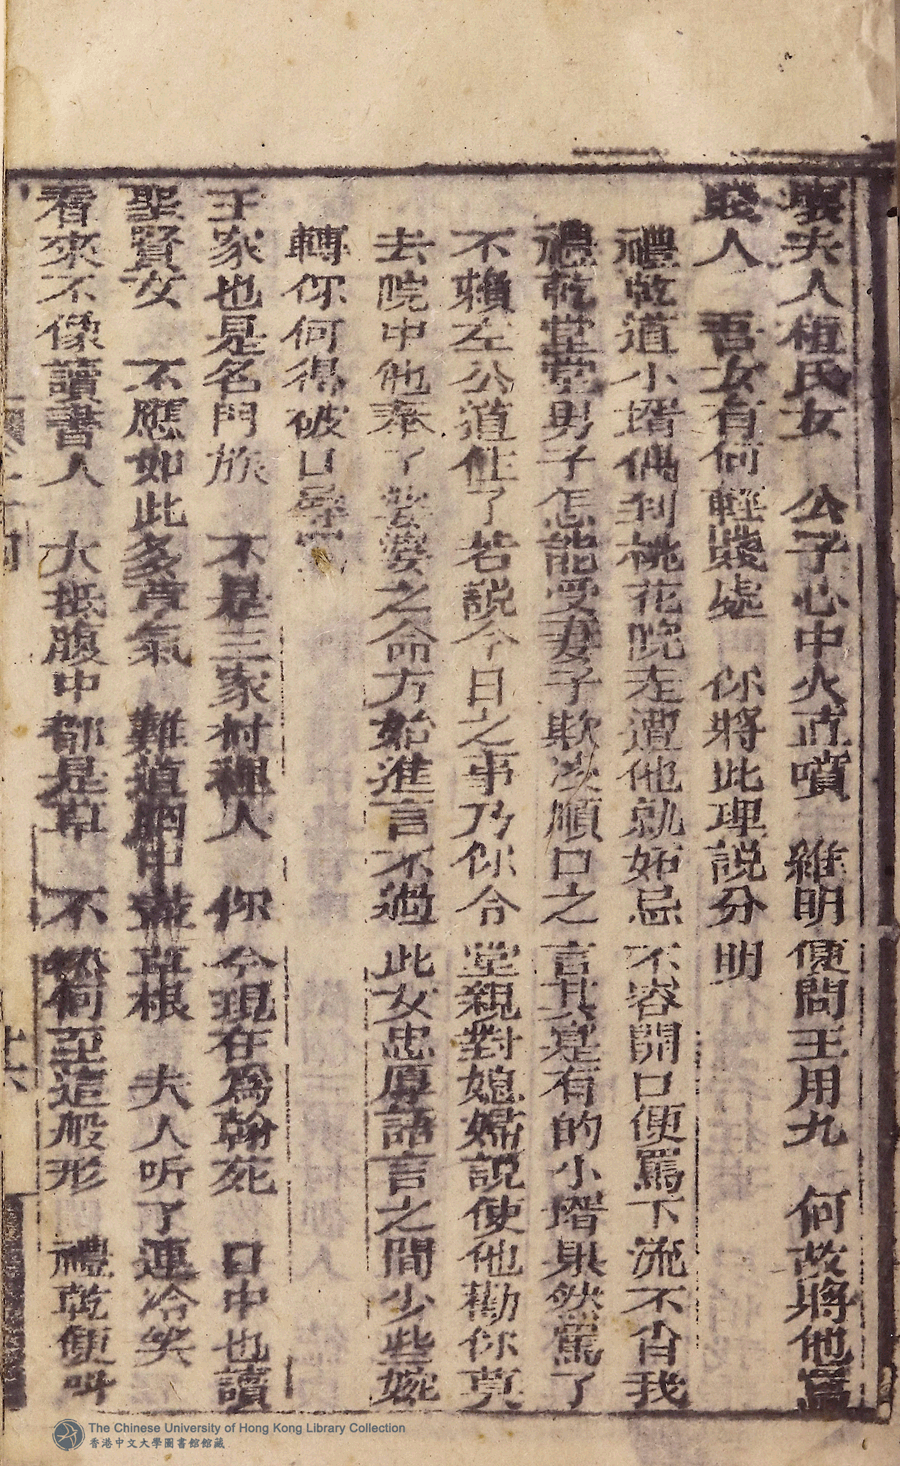 壞夫人植氏女　公子心中火直噴　維明便問王用九　何故將他當
賤人　吾女有何輕賤處　你將此理説分明
禮乾道小壻偶到桃花院走遭他就妬忌不容開口便罵下流不肖我
禮乾堂堂男子怎能受妻子欺凌順口之言其寔有的小壻果然罵了
不賴左公道住了若説今日之事乃你令堂親對媳婦説使他勸你莫
去院中他奉了婆婆之命方始進言不過此女忠厚語言之間少些婉
轉你何得破口
王家也是名門族　不是三家村裡人　你今現在為翰苑　口中也讀
聖賢女　不應如此多草氣　難道胸中盡草根　夫人听了連冷笑
看來不像讀書人　大抵腹中都是草　不然何至這般形　禮乾便呌
十六
The Chinese University of Hong Kong Library Collection
香港中文大學圖書館館藏